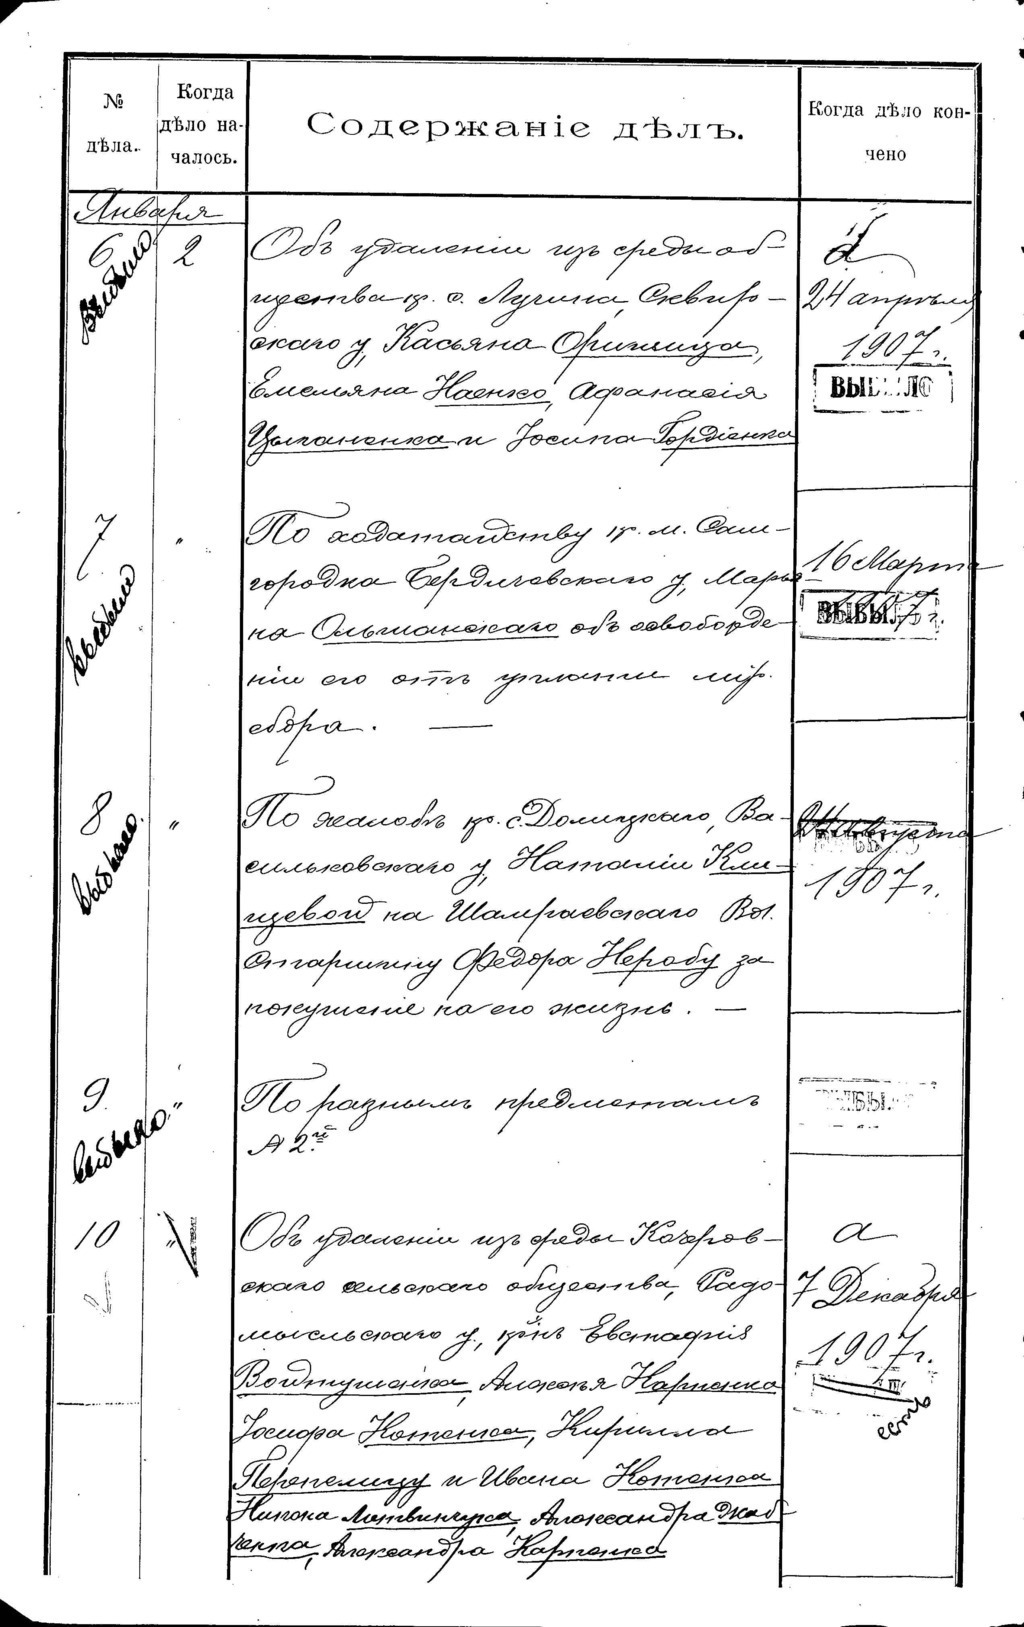 № дѣла.
Когда дѣло на-
чалось.
Содержаніе дѣлъ.
Когда дѣло кон-
чено
Января
6 2 Объ удаленіи изъ среды об-
щества кр. с. Лучина, Сквир-
скаго у, Касьяна
Емельяна Наенко, Афанасія
Цымбаненка и Іосипа Гордіенка
выбыло
24 апрѣля
1907 г.
ВЫБЫЛО
7 " По ходатайству кр. м. Сам-
городка Бердичевскаго у, Марь-
на Ольшанскаго объ освобожде-
ніи его отъ уплаты мір.
сбора. —
выбыло
16 Марта
1907 г.
ВЫБЫЛО
8 " По жалобѣ кр. с. Долицкаго, Ва-
сильковскаго у, Наталіи Кли-
щевой на Шамраевскаго Вол.
Старшину Федора Неробу за
покушеніе на его жизнь. —
выбыло.
24 Августа
1907 г.
9. " По разнымъ предметамъ
А 2й
выбыло.
ВЫБЫЛО
10 " Объ удаленіи изъ среды Кочеров-
скаго сельскаго общества, Радо-
мысльскаго у., кр-нъ Евстафія
Войтушенка, Алексѣя Карпенка
Іосифа Котенка, Кирилла
Перепелицу и Ивана Котенка
Никона Литвинчука, Александра
Александра Карпенка
а
7 Декабря
1907 г.
есть